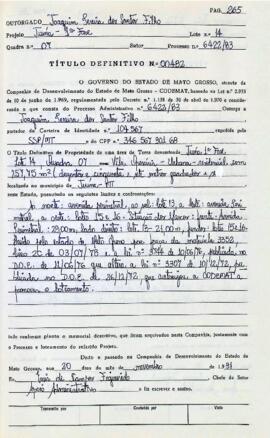 PAG. 265
OUTORGADO Joaquim Pereira dos Santos Filho
Projeto Juína - 1ª Fase Lote n.º 14
Quadra n.º 07 Setor Processo n.º 6422/83
TÍTULO DEFINITIVO Nº 00482
O GOVERNO DO ESTADO DE MATO GROSSO, através da
Companhia de Desenvolvimento do Estado de Mato Grosso - CODEMAT, baseado na Lei n.º 2.093
de 10 de junho de 1.969, regulamentada pelo Decreto n.º 1.138 de 30 de abril de 1.970 e considerando
o que consta do Processo Administrativo n.º 6422/83 Concede a
Joaquim Pereira dos Santos Filho
portador da Carteira de Identidade n.º 104567 expedida pela
SSP/MT e do CPF n.º 346 567 901 68
O Título Definitivo de Propriedade de uma área de Terra denominada Juína 1ª Fase,
lote 14 Quadra 07 - Urbana - residencial, com
localizado no município de Juína-MT
neste Estado, possuindo os seguintes limites e confrontações:
Ao norte: avenida perimetral, ao sul: lote 13, a leste: avenida peri-
metral, a oeste: lotes 15 e 16 - frente: Avenida
Perimetral: 23,00m, lado direito: lote 13 - 21,00m, fundos: lotes 15 e 16.
pelo estado de Mato Grosso por força da matrícula 3352,
livro 20 de 03/07/78 e a lei nº 3744 de 10/06/76, publicada no
D.O.E. de 11/06/76 que altera a lei nº 3307 de 10/12/72, pu-
blicada no D.O.E. de 26/12/72 que autoriza a CODEMAT a
promover o loteamento.
tudo conforme planta e memorial descritivo, que ficam arquivados nesta Companhia, juntamente com
o Processo de loteamento do referido Projeto.
Dado e passado na Companhia de Desenvolvimento do Estado de
Mato Grosso, aos 20 dias do mês de novembro de 1991
Chefe do Setor
Apoio Administrativo o fiz escrever e assino.
Transmitido por Contrato Visto